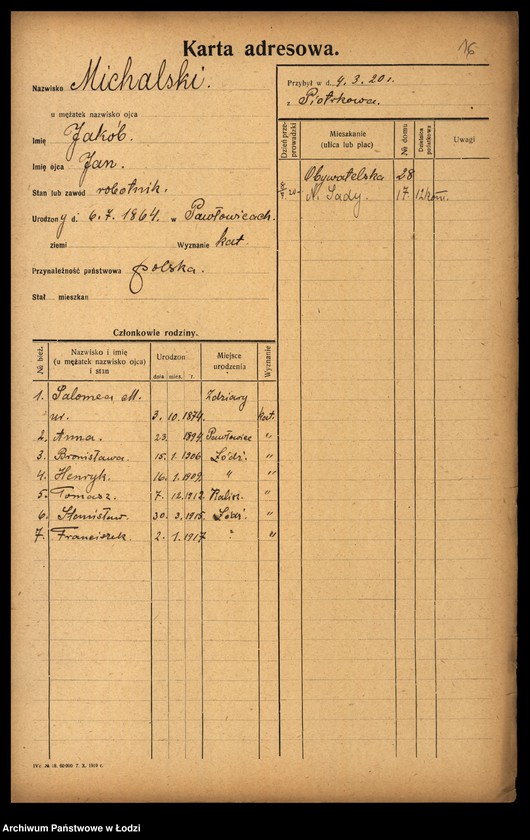 Karta adresowa.
16
Nazwisko Michalski.
u mężatek nazwisko ojca
Imię Jakób.
Imię ojca Jan.
Stan lub zawód robotnik.
Urodzony d. 6.7.1864. w Pawłowicach.
ziemi Wyznanie kat.
Przynależność państwowa polska.
Stał. mieszkan
Przybył w d. 4.3.20 r.
z Piotrkowa.
Dzień przeprowadzki Mieszkanie (ulica lub plac) № domu Dzielnica podatkowa Uwagi
Obywatelska 28
N. Sady. 17.
Członkowie rodziny.
№ bież. Nazwisko i imię (u mężatek nazwisko ojca) i stan Urodzon dnia mies. r. Miejsce urodzenia Wyznanie
1. Salomea M. Zdziary
ur. 3. 10. 1874. kat.
2. Anna. 23. 1894. Pawłowice "
3. Bronisława. 15. 1. 1906 Łódź. "
4. Henryk. 16. 1. 1909. " "
5. Tomasz. 7. 12. 1912. Kalisz. "
6. Stanisław. 30. 3. 1915. Łódź. "
7. Franciszek 2. 1. 1917. "
IVt. № 18. 60/000 7. X. 1919 r.
Archiwum Państwowe w Łodzi